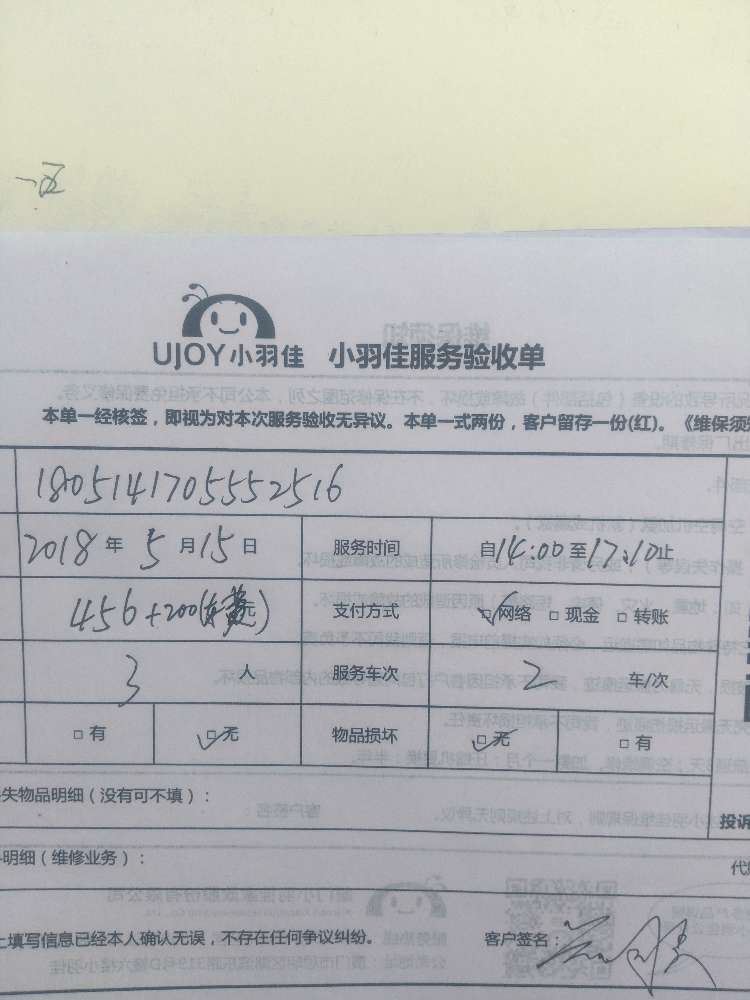 UJOY小羽佳 小羽佳服务验收单
本单一经核签，即视为对本次服务验收无异议。本单一式两份，客户留存一份(红)。《维保须
1805141705552516
2018年5月15日 服务时间 自14:00至17:10止
456+200( 支付方式 ☑网络 □现金 □转账
3人 服务车次 2车/次
□有 ☑无 物品损坏 ☑无 □有
失物品明细（没有可不填）：
投诉
明细（维修业务）：
上填写信息已经本人确认无误，不存在任何争议纠纷。 客户签名：